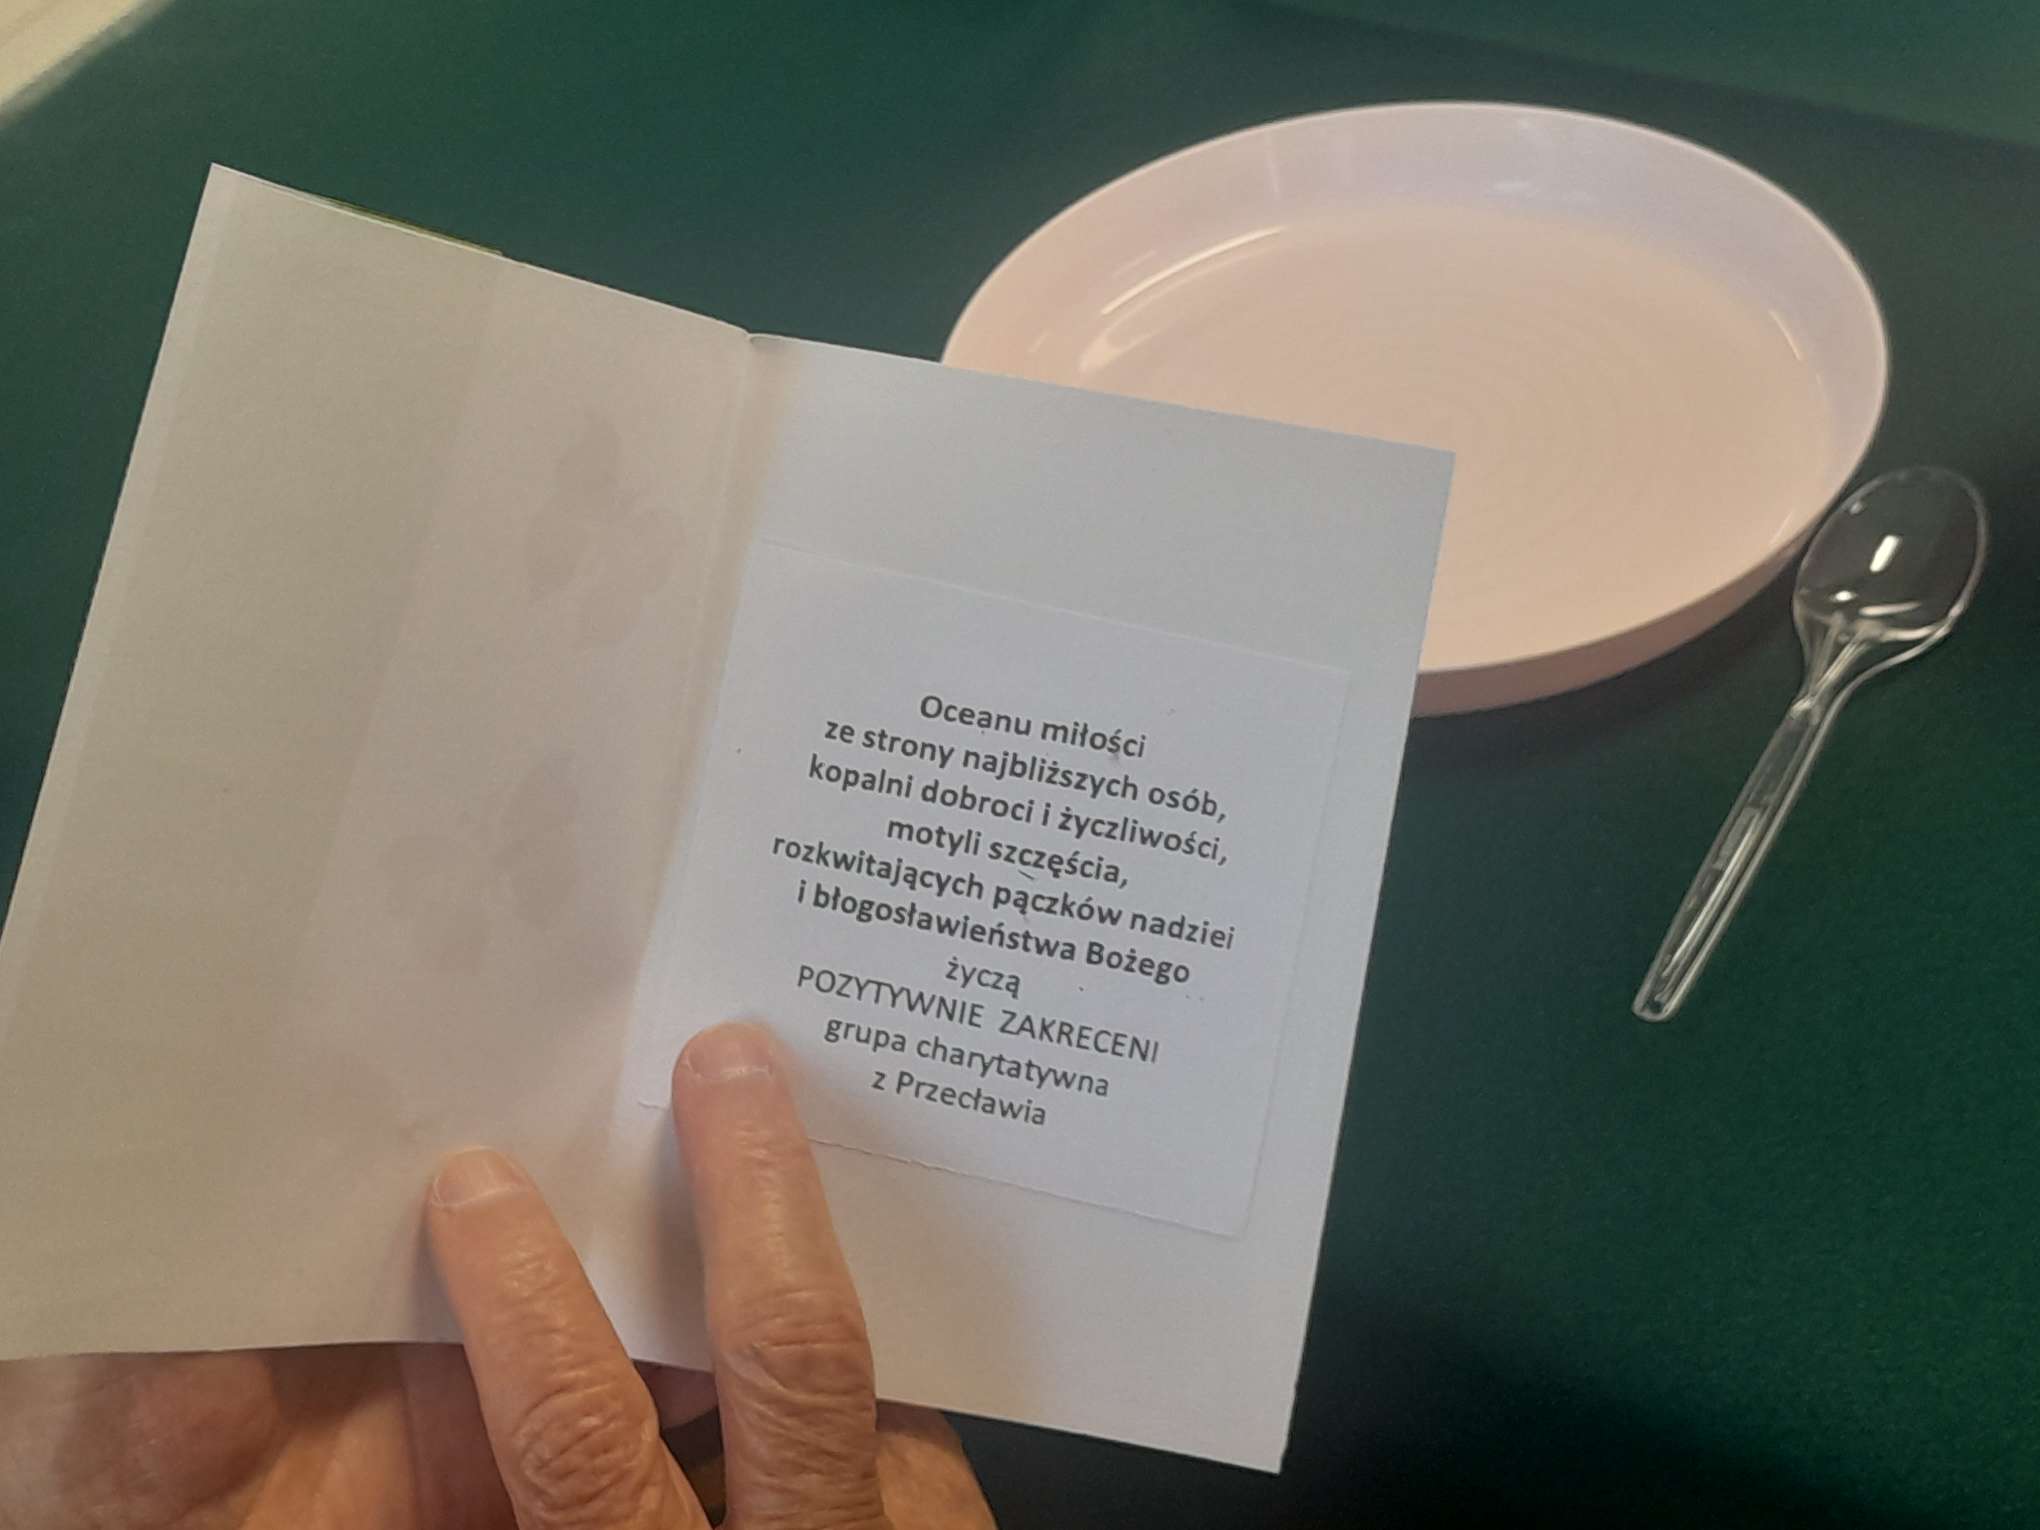 Oceanu miłości
ze strony najbliższych osób,
kopalni dobroci i życzliwości,
motyli szczęścia,
rozkwitających pączków nadziei
i błogosławieństwa Bożego
życzą
POZYTYWNIE ZAKRECENI
grupa charytatywna
z Przecławia